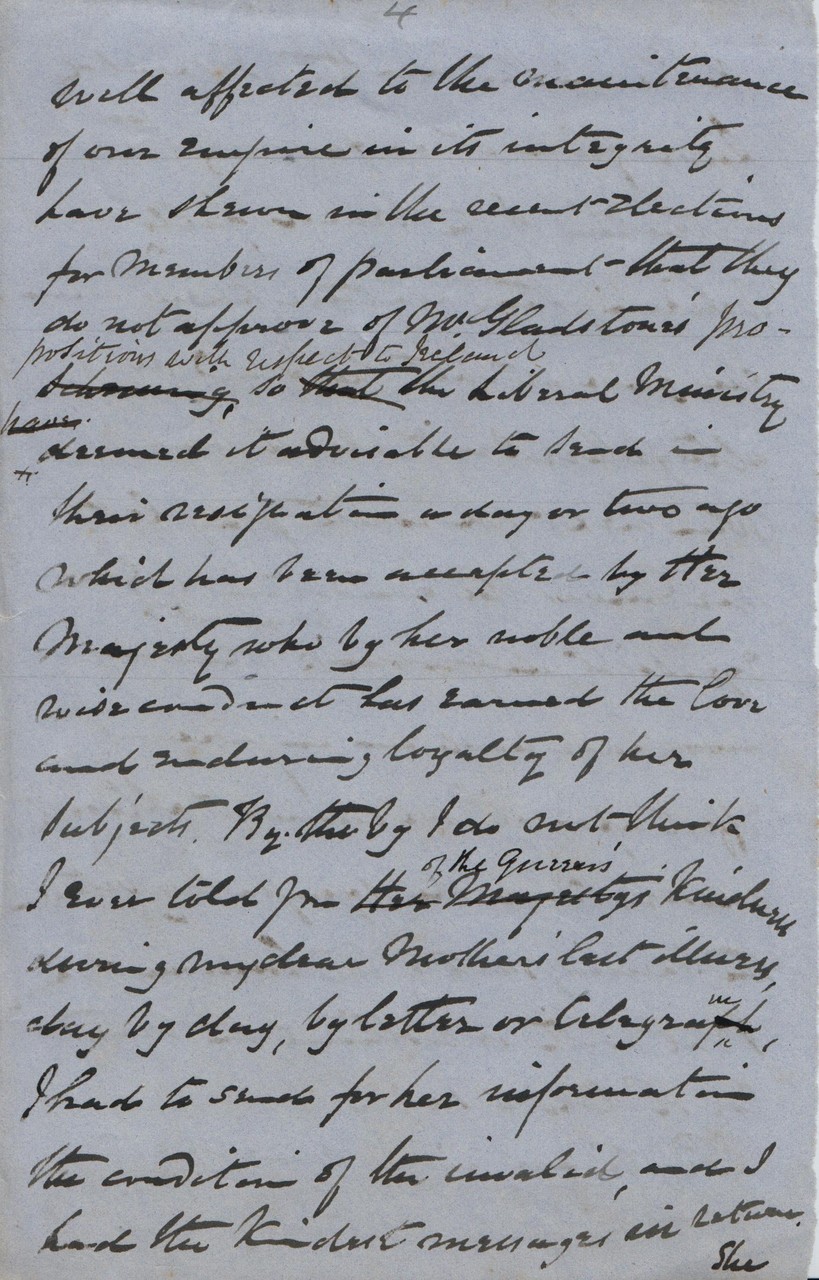 4
well affected to the maintenance
of our Empire in its integrity
have shewn in the recent Elections
for Members of parliament that they
do not approve of Mr. Gladstone's pro-
positions with respect to Ireland
so that the Liberal Ministry
have
deemed it advisable to send in
their resignation a day or two ago
which has been accepted by Her
Majesty who by her noble and
wise conduct has earned the love
and enduring loyalty of her
Subjects. By the by I do not think
of the Queen's
I ever told you Her Majesty's Kindness
during my dear Mother's last illness,
day by day, by letter or telegraph,
m
I had to send for her information
the condition of the invalid, and I
had the Kindest messages in return.
She